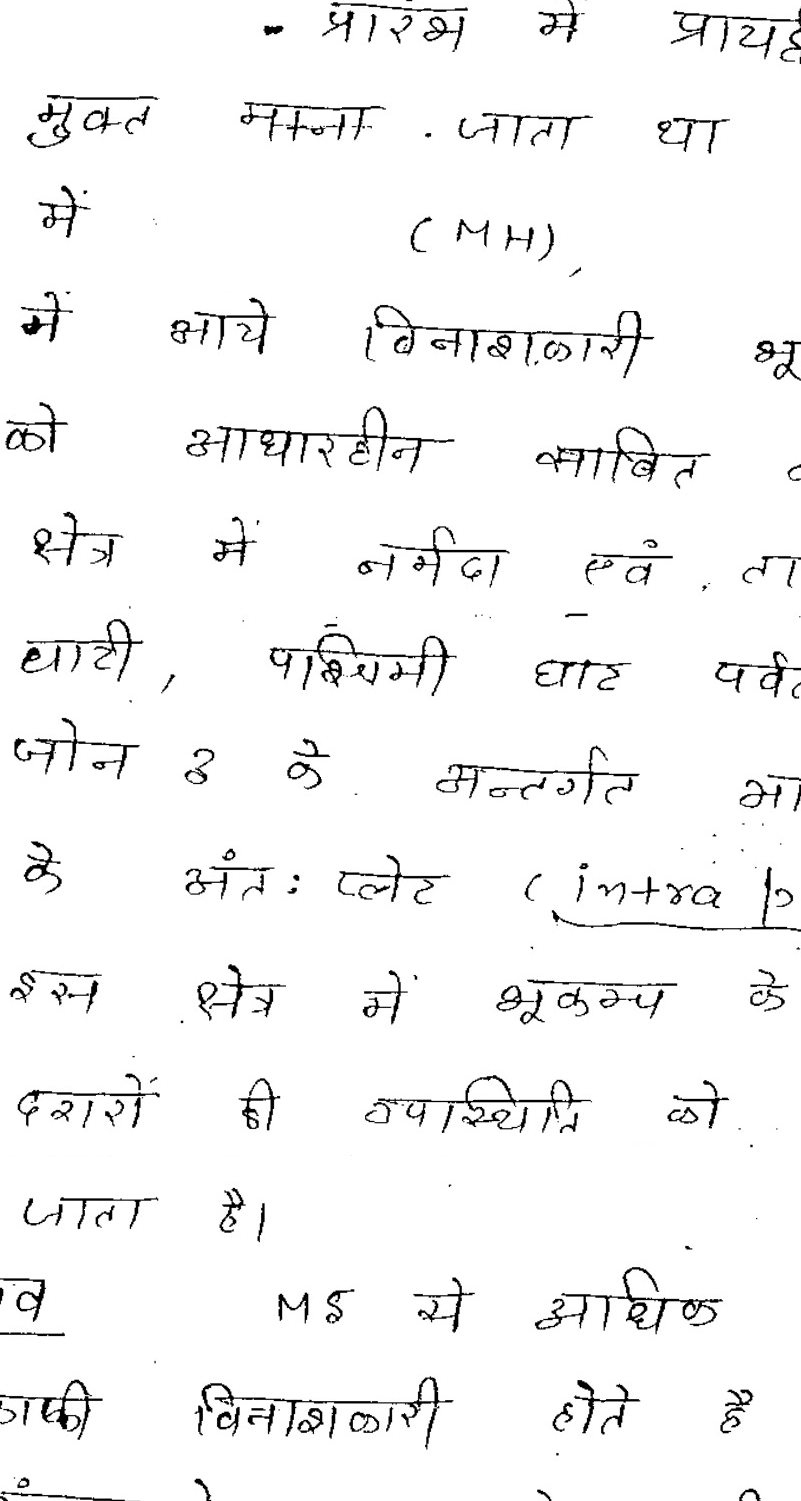 • प्रारंभ में प्रायद्वी
मुक्त माना जाता था
में (MH),
में आये विनाशकारी भू
को आधारहीन साबित
क्षेत्र में नर्मदा एवं ता
घाटी, पश्चिमी घाट पर्वत
जोन 3 के अन्तर्गत आ
के अंत: प्लेट (intra p
इस क्षेत्र में भूकम्प के
दरारों की उपस्थिति को
जाता है।
व M5 से अधिक
काफी विनाशकारी होते है